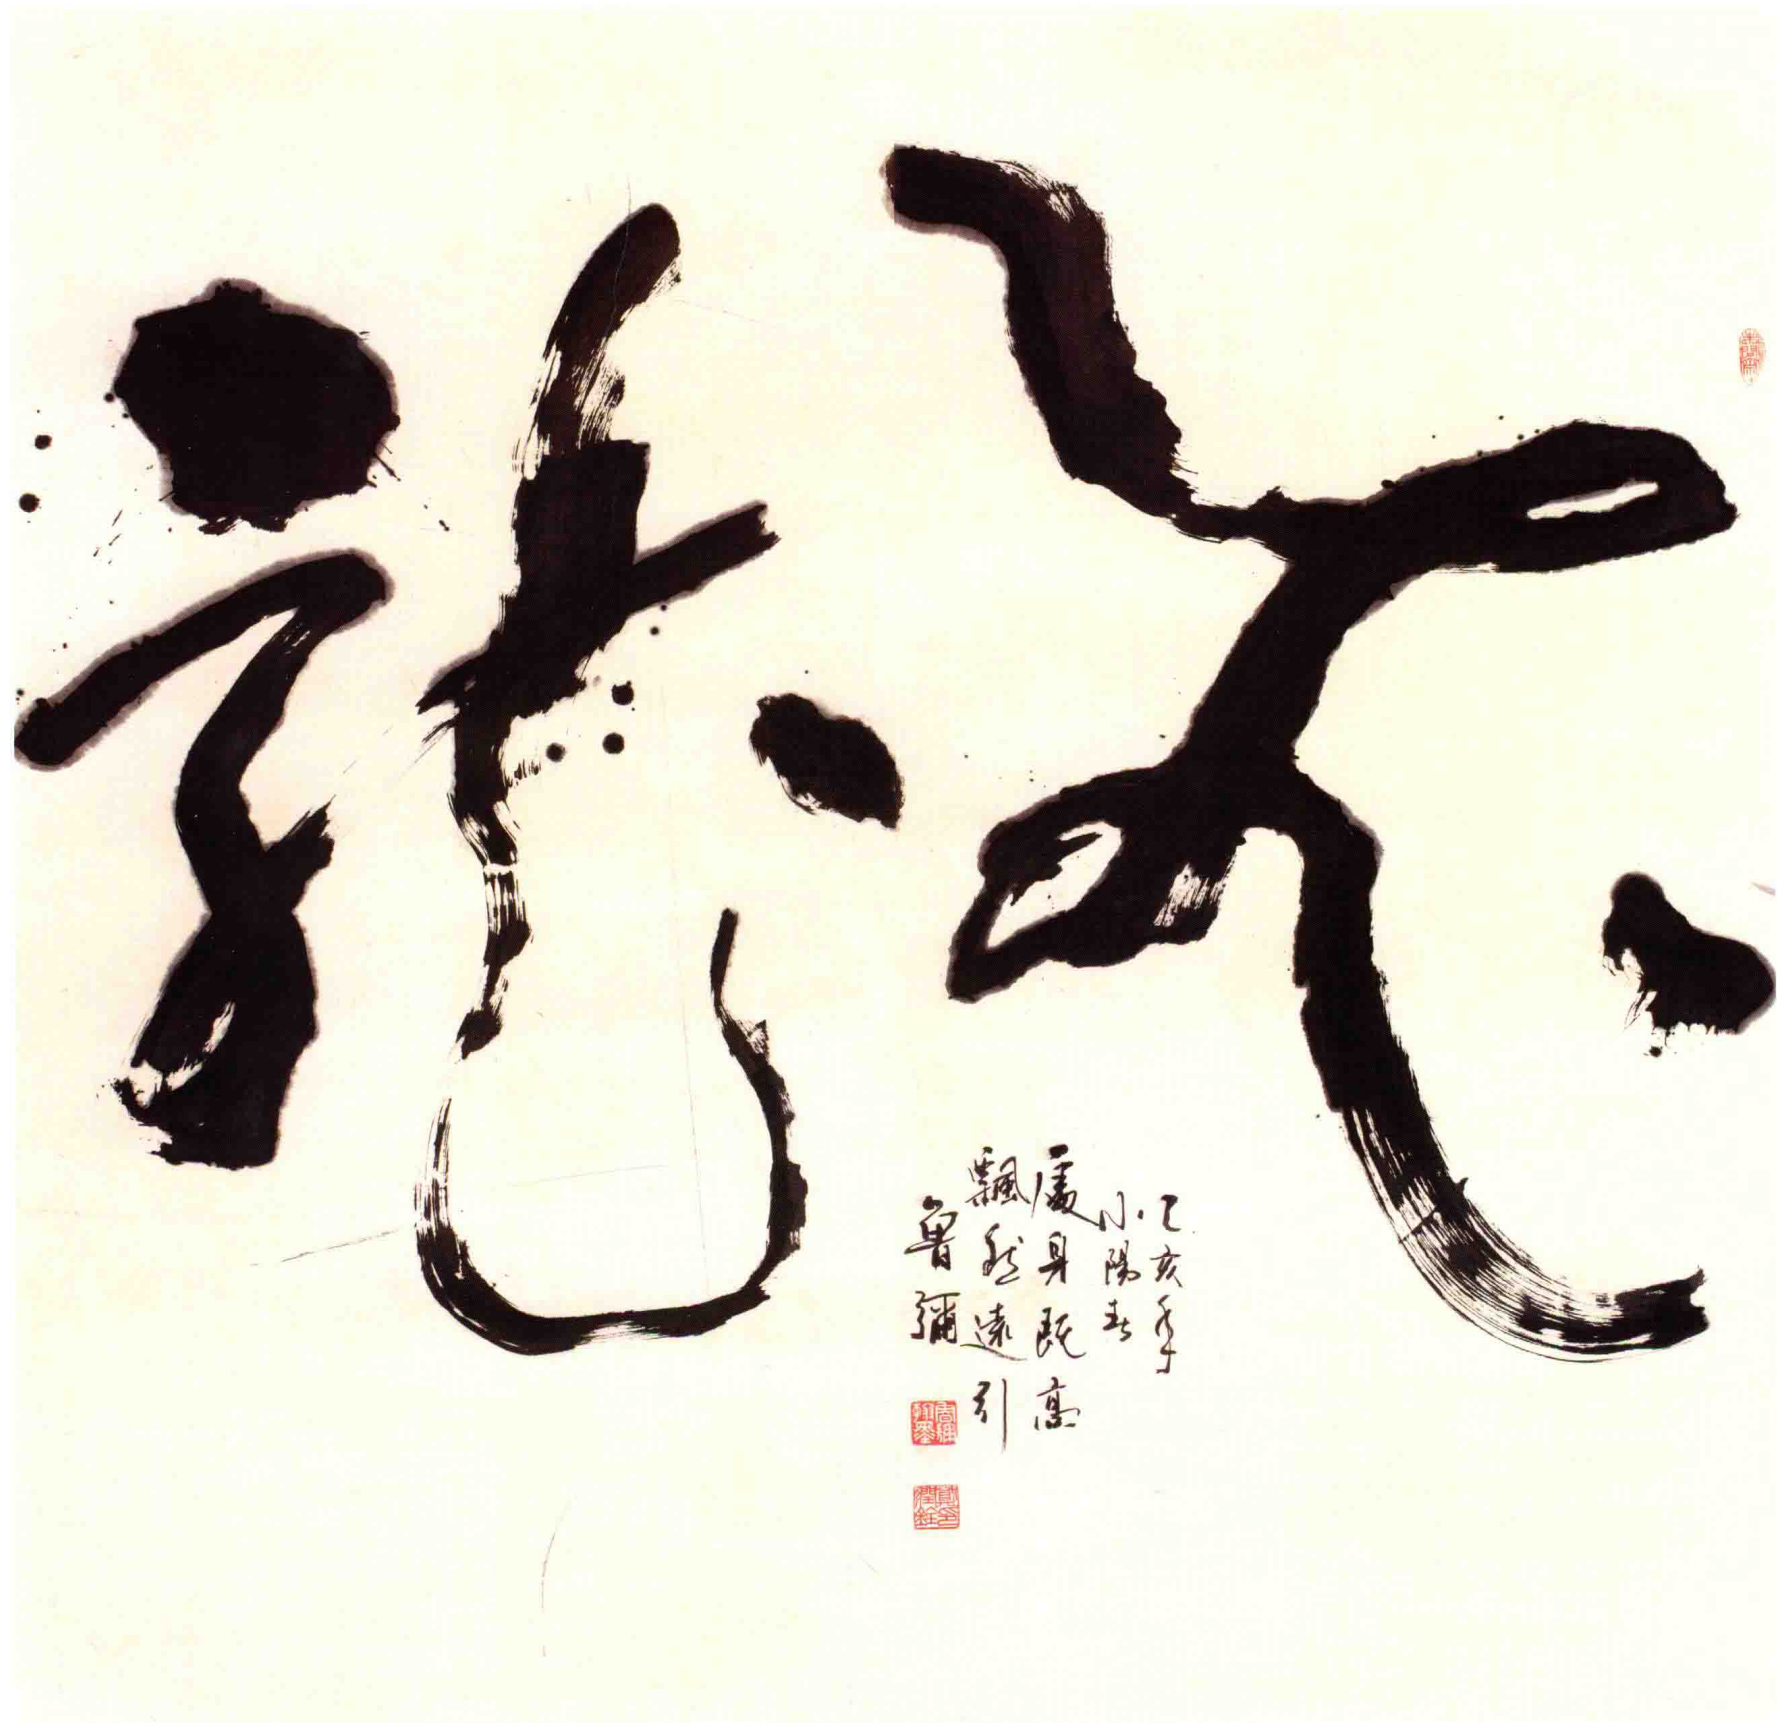 飛龍
乙亥年
小陽春
處身既高
飄然遠引
魯彌